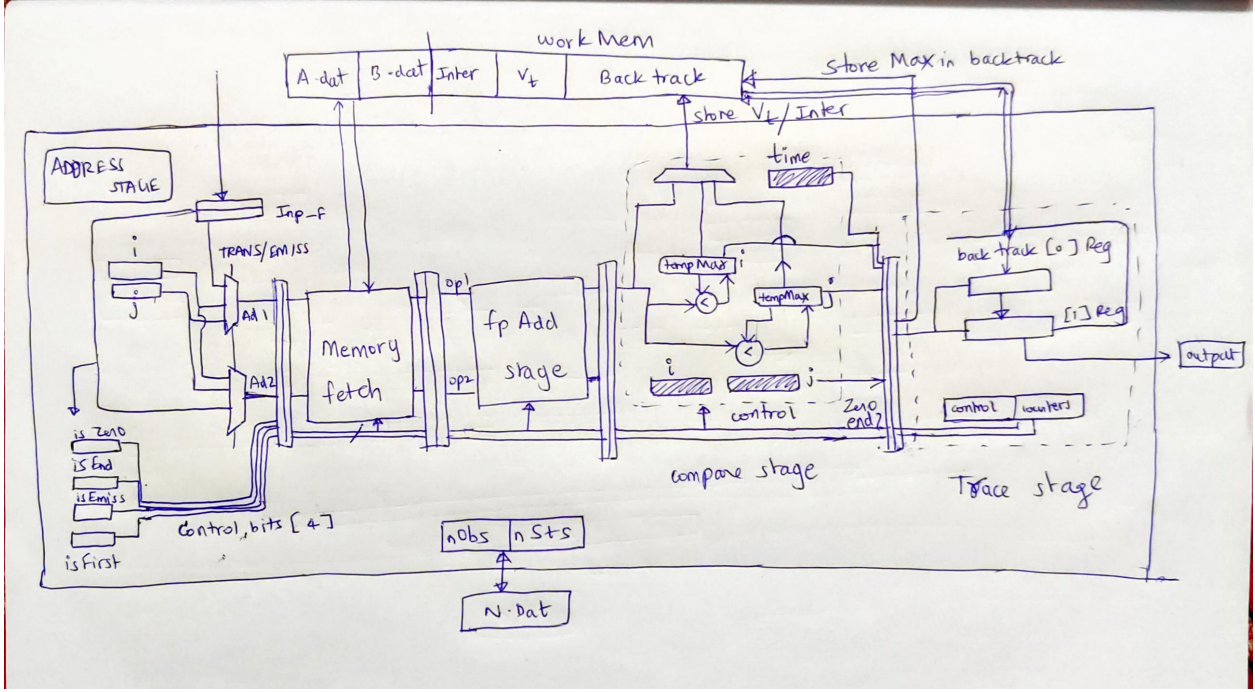 work Mem
A-dat B-dat Inter Vt Back track
store Max in backtrack
store Vt/Inter
ADDRESS
STAGE
time
Inp-f
i
TRANS/EMISS
j
Ad1
Ad2
Memory
fetch
op1
op2
fp Add
stage
tempMax i
tempMax j
<
<
i
j
control
Zero
end?
compare stage
back track [0] Reg
[1] Reg
output
control counters
Trace stage
is Zero
isEnd
isEmiss
isFirst
Control, bits [4]
nObs nSts
N-Dat